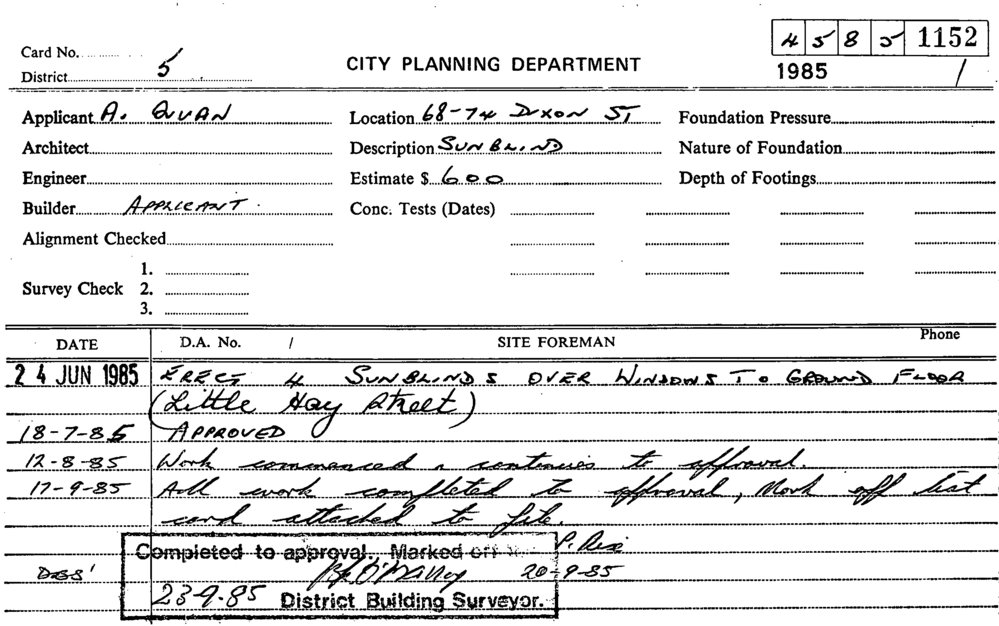 4 5 8 5 1152
Card No.
CITY PLANNING DEPARTMENT
1985 /
District 5
Applicant A. QUAN Location 68-74 DIXON ST Foundation Pressure
Architect Description SUN BLIND Nature of Foundation
Engineer Estimate $ 600 Depth of Footings
Builder APPLICANT. Conc. Tests (Dates)
Alignment Checked
1.
Survey Check 2.
3.
DATE D.A. No. / SITE FOREMAN Phone
24 JUN 1985 ERECT 4 SUNBLINDS OVER WINDOWS TO GROUND FLOOR
(Little Hay Street)
18-7-85 APPROVED
12-8-85 Work commenced & continues to approval.
17-9-85 All work completed to approval, Mark off list
card attached to file.
Completed to approval., Marked off P. Rix
DBS' O'Malley 20-9-85
23-9-85 District Building Surveyor.